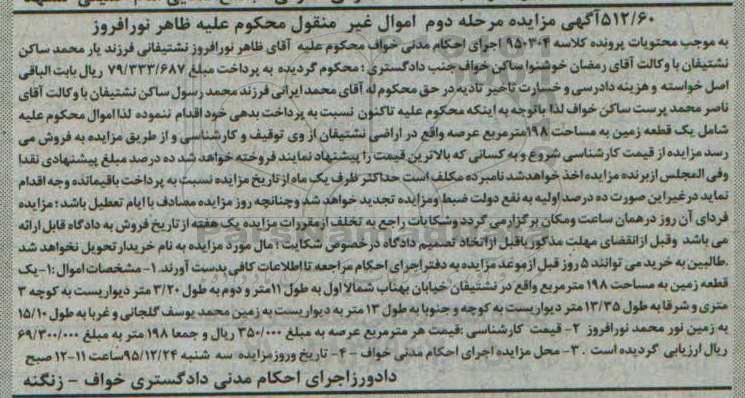 ۵۱۲/۶۰آگهی مزایده مرحله دوم اموال غیر منقول محکوم علیه ظاهر نورافروز
به موجب محتویات پرونده کلاسه ۹۵۰۳۰۴ اجرای احکام مدنی خواف محکوم علیه آقای ظاهر نورافروز نشتیفانی فرزند یار محمد ساکن
نشتیفان با وکالت آقای رمضان خوشنوا ساکن خواف جنب دادگستری ؛ محکوم گردیده به پرداخت مبلغ ۷۹/۳۳۳/۶۸۷ ریال بابت الباقی
اصل خواسته و هزینه دادرسی و خسارت تاخیر تادیه در حق محکوم له آقای محمد ایرانی فرزند محمد رسول ساکن نشتیفان با وکالت آقای
ناصر محمد پرست ساکن خواف لذا باتوجه به اینکه محکوم علیه تاکنون نسبت به پرداخت بدهی خود اقدام ننموده لذا اموال محکوم علیه
شامل یک قطعه زمین به مساحت ۱۹۸مترمربع عرصه واقع در اراضی نشتیفان از وی توقیف و کارشناسی و از طریق مزایده به فروش می
رسد مزایده از قیمت کارشناسی شروع و به کسانی که بالاترین قیمت را پیشنهاد نمایند فروخته خواهد شد ده درصد مبلغ پیشنهادی نقدا
وفی المجلس از برنده مزایده اخذ خواهد شد نامبرده مکلف است حداکثر ظرف یک ماه از تاریخ مزایده نسبت به پرداخت باقیمانده وجه اقدام
نماید در غیر این صورت ده درصد اولیه به نفع دولت ضبط و مزایده تجدید خواهد شد و چنانچه روز مزایده مصادف با ایام تعطیل باشد ؛ مزایده
فردای آن روز در همان ساعت و مکان برگزار می گردد و شکایات راجع به تخلف از مقررات مزایده یک هفته از تاریخ فروش به دادگاه قابل ارائه
می باشد وقبل از انقضای مهلت مذکور یا قبل از اتخاذ تصمیم دادگاه در خصوص شکایت ؛ مال مورد مزایده به نام خریدار تحویل نخواهد شد
.طالبین به خرید می توانند ۵ روز قبل از موعد مزایده به دفتر اجرای احکام مراجعه تا اطلاعات کافی بدست آورند. ۱- مشخصات اموال :۱-یک
قطعه زمین به مساحت ۱۹۸ مترمربع واقع در نشتیفان خیابان شمالا اول به طول ۱۱متر و دوم به طول ۳/۲۰ متر دیواریست به کوچه ۳
متری و شرقا به طول ۱۳/۳۵ متر دیواریست به کوچه و جنوبا به طول ۱۳ متر به دیواریست به زمین محمد یوسف گلجانی و غربا به طول ۱۵/۱۰
به زمین نور محمد نورافروز ۲- قیمت کارشناسی :قیمت هر مترمربع عرصه به مبلغ ۳۵۰/۰۰۰ ریال و جمعا ۱۹۸ متر به مبلغ ۶۹/۳۰۰/۰۰۰
ریال ارزیابی گردیده است . ۳- محل مزایده اجرای احکام مدنی خواف - ۴- تاریخ وروز مزایده سه شنبه ۹۵/۱۲/۲۴ساعت ۱۱-۱۲ صبح
دادورز اجرای احکام مدنی دادگستری خواف - زنگنه